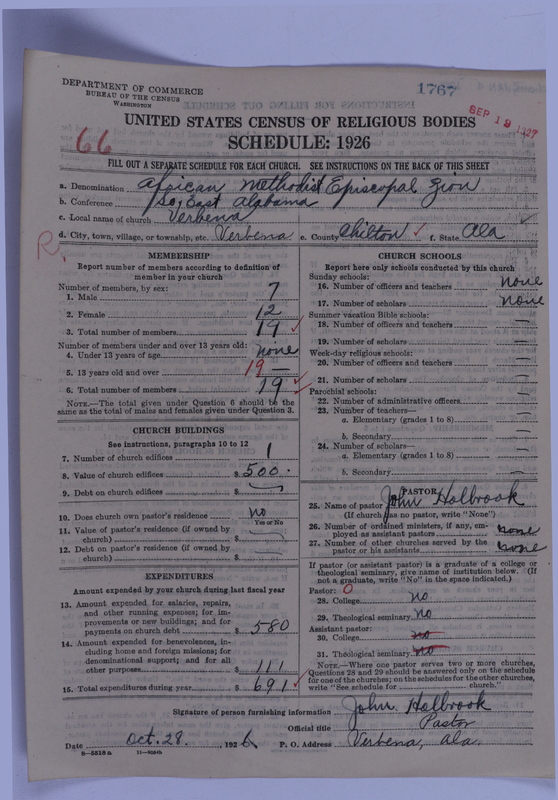 DEPARTMENT OF COMMERCE
BUREAU OF THE CENSUS
WASHINGTON
1767
SEP 19 1927
UNITED STATES CENSUS OF RELIGIOUS BODIES
66
SCHEDULE: 1926
FILL OUT A SEPARATE SCHEDULE FOR EACH CHURCH. SEE INSTRUCTIONS ON THE BACK OF THIS SHEET
a. Denomination African Methodist Episcopal Zion
b. Conference So. East Alabama
c. Local name of church Verbena
d. City, town, village, or township, etc. Verbena e. County Chilton f. State Ala
R.
MEMBERSHIP
Report number of members according to definition of member in your church
Number of members, by sex:
1. Male 7
2. Female 12
3. Total number of members 19
Number of members under and over 13 years old:
4. Under 13 years of age none
5. 13 years old and over 19 —
6. Total number of members 19
NOTE.—The total given under Question 6 should be the same as the total of males and females given under Question 3.
CHURCH BUILDINGS
See instructions, paragraphs 10 to 12
7. Number of church edifices 1
8. Value of church edifices $ 500.
9. Debt on church edifices $ —
10. Does church own pastor's residence no
Yes or No
11. Value of pastor's residence (if owned by church) $ —
12. Debt on pastor's residence (if owned by church) $ —
EXPENDITURES
Amount expended by your church during last fiscal year
13. Amount expended for salaries, repairs, and other running expenses; for improvements or new buildings; and for payments on church debt $ 580
14. Amount expended for benevolences, including home and foreign missions; for denominational support; and for all other purposes $ 111
15. Total expenditures during year $ 691
CHURCH SCHOOLS
Report here only schools conducted by this church
Sunday schools:
16. Number of officers and teachers none
17. Number of scholars none
Summer vacation Bible schools:
18. Number of officers and teachers —
19. Number of scholars —
Week-day religious schools:
20. Number of officers and teachers —
21. Number of scholars —
Parochial schools:
22. Number of administrative officers —
23. Number of teachers—
a. Elementary (grades 1 to 8) —
b. Secondary —
24. Number of scholars—
a. Elementary (grades 1 to 8) —
b. Secondary —
PASTOR
25. Name of pastor John Holbrook
(If church has no pastor, write "None")
26. Number of ordained ministers, if any, employed as assistant pastors none
27. Number of other churches served by the pastor or his assistants none
If pastor (or assistant pastor) is a graduate of a college or theological seminary, give name of institution below. (If not a graduate, write "No" in the space indicated.)
Pastor: 0
28. College no
29. Theological seminary no
Assistant pastor:
30. College no
31. Theological seminary no
NOTE.—Where one pastor serves two or more churches, Questions 28 and 29 should be answered only on the schedule for one of the churches; on the schedules for the other churches, write "See schedule for ........ church."
Signature of person furnishing information John Holbrook
Official title Pastor
Date Oct. 28, 1926 P. O. Address Verbena, Ala.
8-5318a 11-9064b